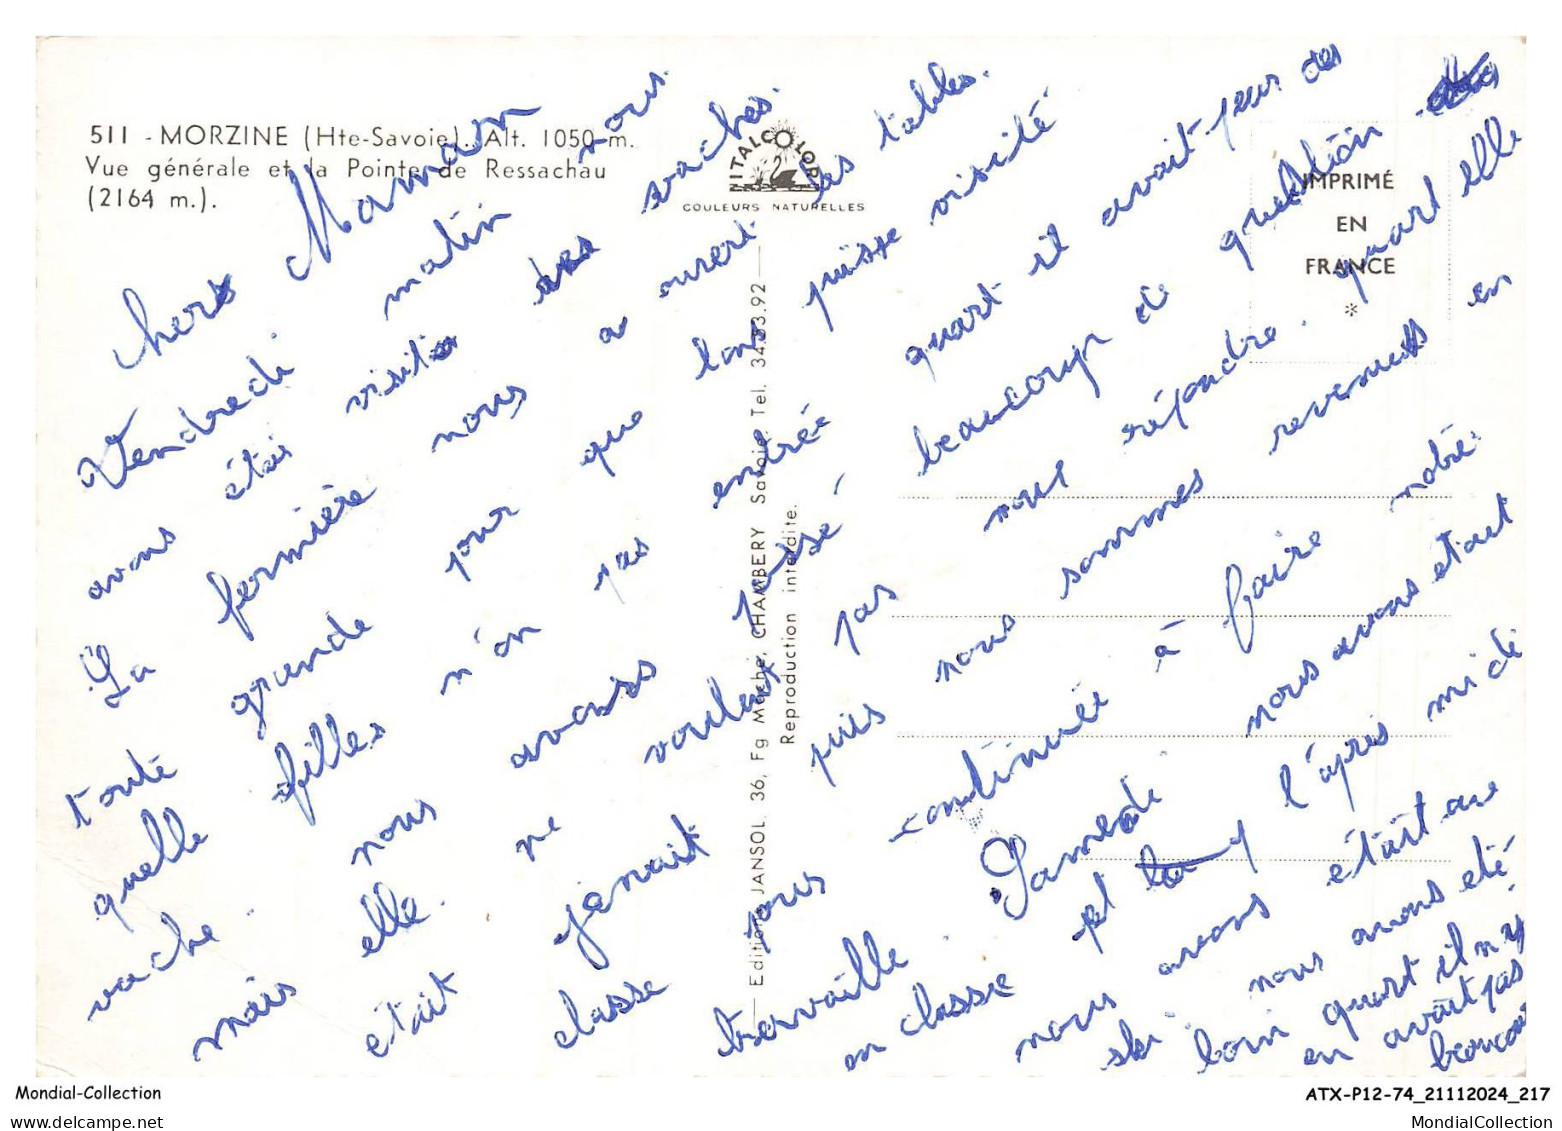 511 - MORZINE (Hte-Savoie). Alt. 1050 m.
Vue générale et la Pointe de Ressachau
(2164 m.).
ITALCOLOR
COULEURS NATURELLES
IMPRIMÉ
EN
FRANCE
*
Editions JANSOL, 36, Fg Maché, CHAMBERY Savoie Tel. 34.53.92
Reproduction interdite.
chers Maman
Vendredi matin nous
avons étai visiter des vaches.
La fermière nous a ouvert les tables.
toute grande pour que lons puisse visité
quelle filles n'on pas entrée quart il avait peur des
vache. nous avons passé beaucoup de question
mais elle. ne voulait pas nous répondre. quart elle
était jenait puis nous sommes revenus en
classe pous continuée à faire notre
travaille. Samedi nous avons etaut
en classe et l'après midi
nous avons étart au
ski. nous avons été
loin quart il n y
en avait pas
beaucou
Mondial-Collection
ATX-P12-74_21112024_217
MondialCollection